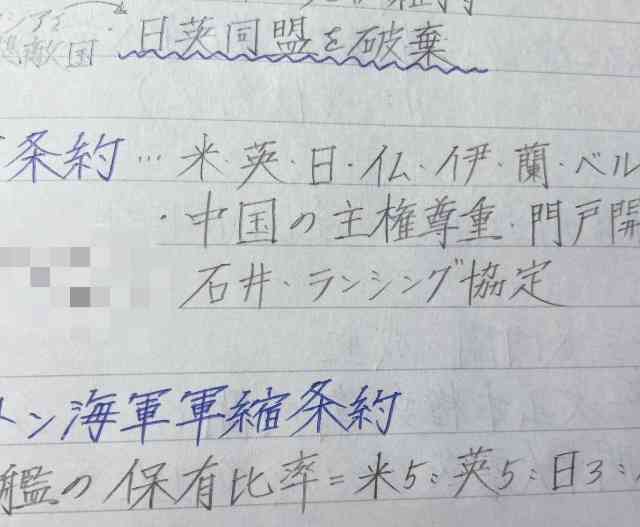 日英同盟を破棄
敵国
条約…米・英・日・仏・伊・蘭・ベル
・中国の主権尊重・門戸開
石井・ランシング協定
トン海軍軍縮条約
艦の保有比率=米5:英5:日3: